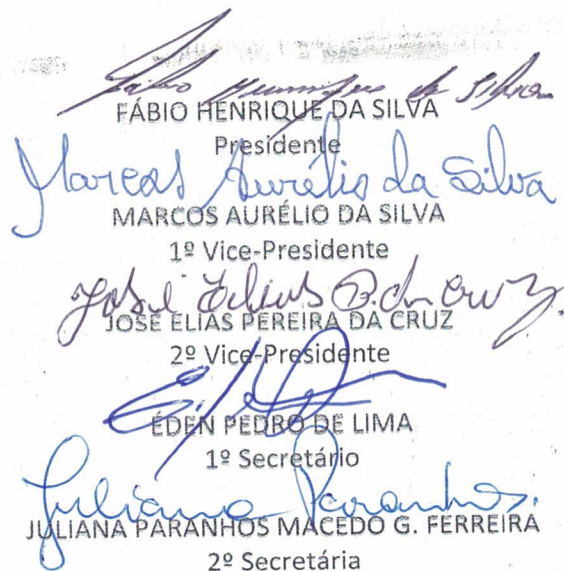 Fábio Henrique da Silva
FÁBIO HENRIQUE DA SILVA
Presidente
Marcos Aurélio da Silva
MARCOS AURÉLIO DA SILVA
1º Vice-Presidente
José Elias P. da Cruz
JOSÉ ELIAS PEREIRA DA CRUZ
2º Vice-Presidente
ÉDEN PEDRO DE LIMA
1º Secretário
Juliana Paranhos.
JULIANA PARANHOS MACEDO G. FERREIRA
2º Secretária